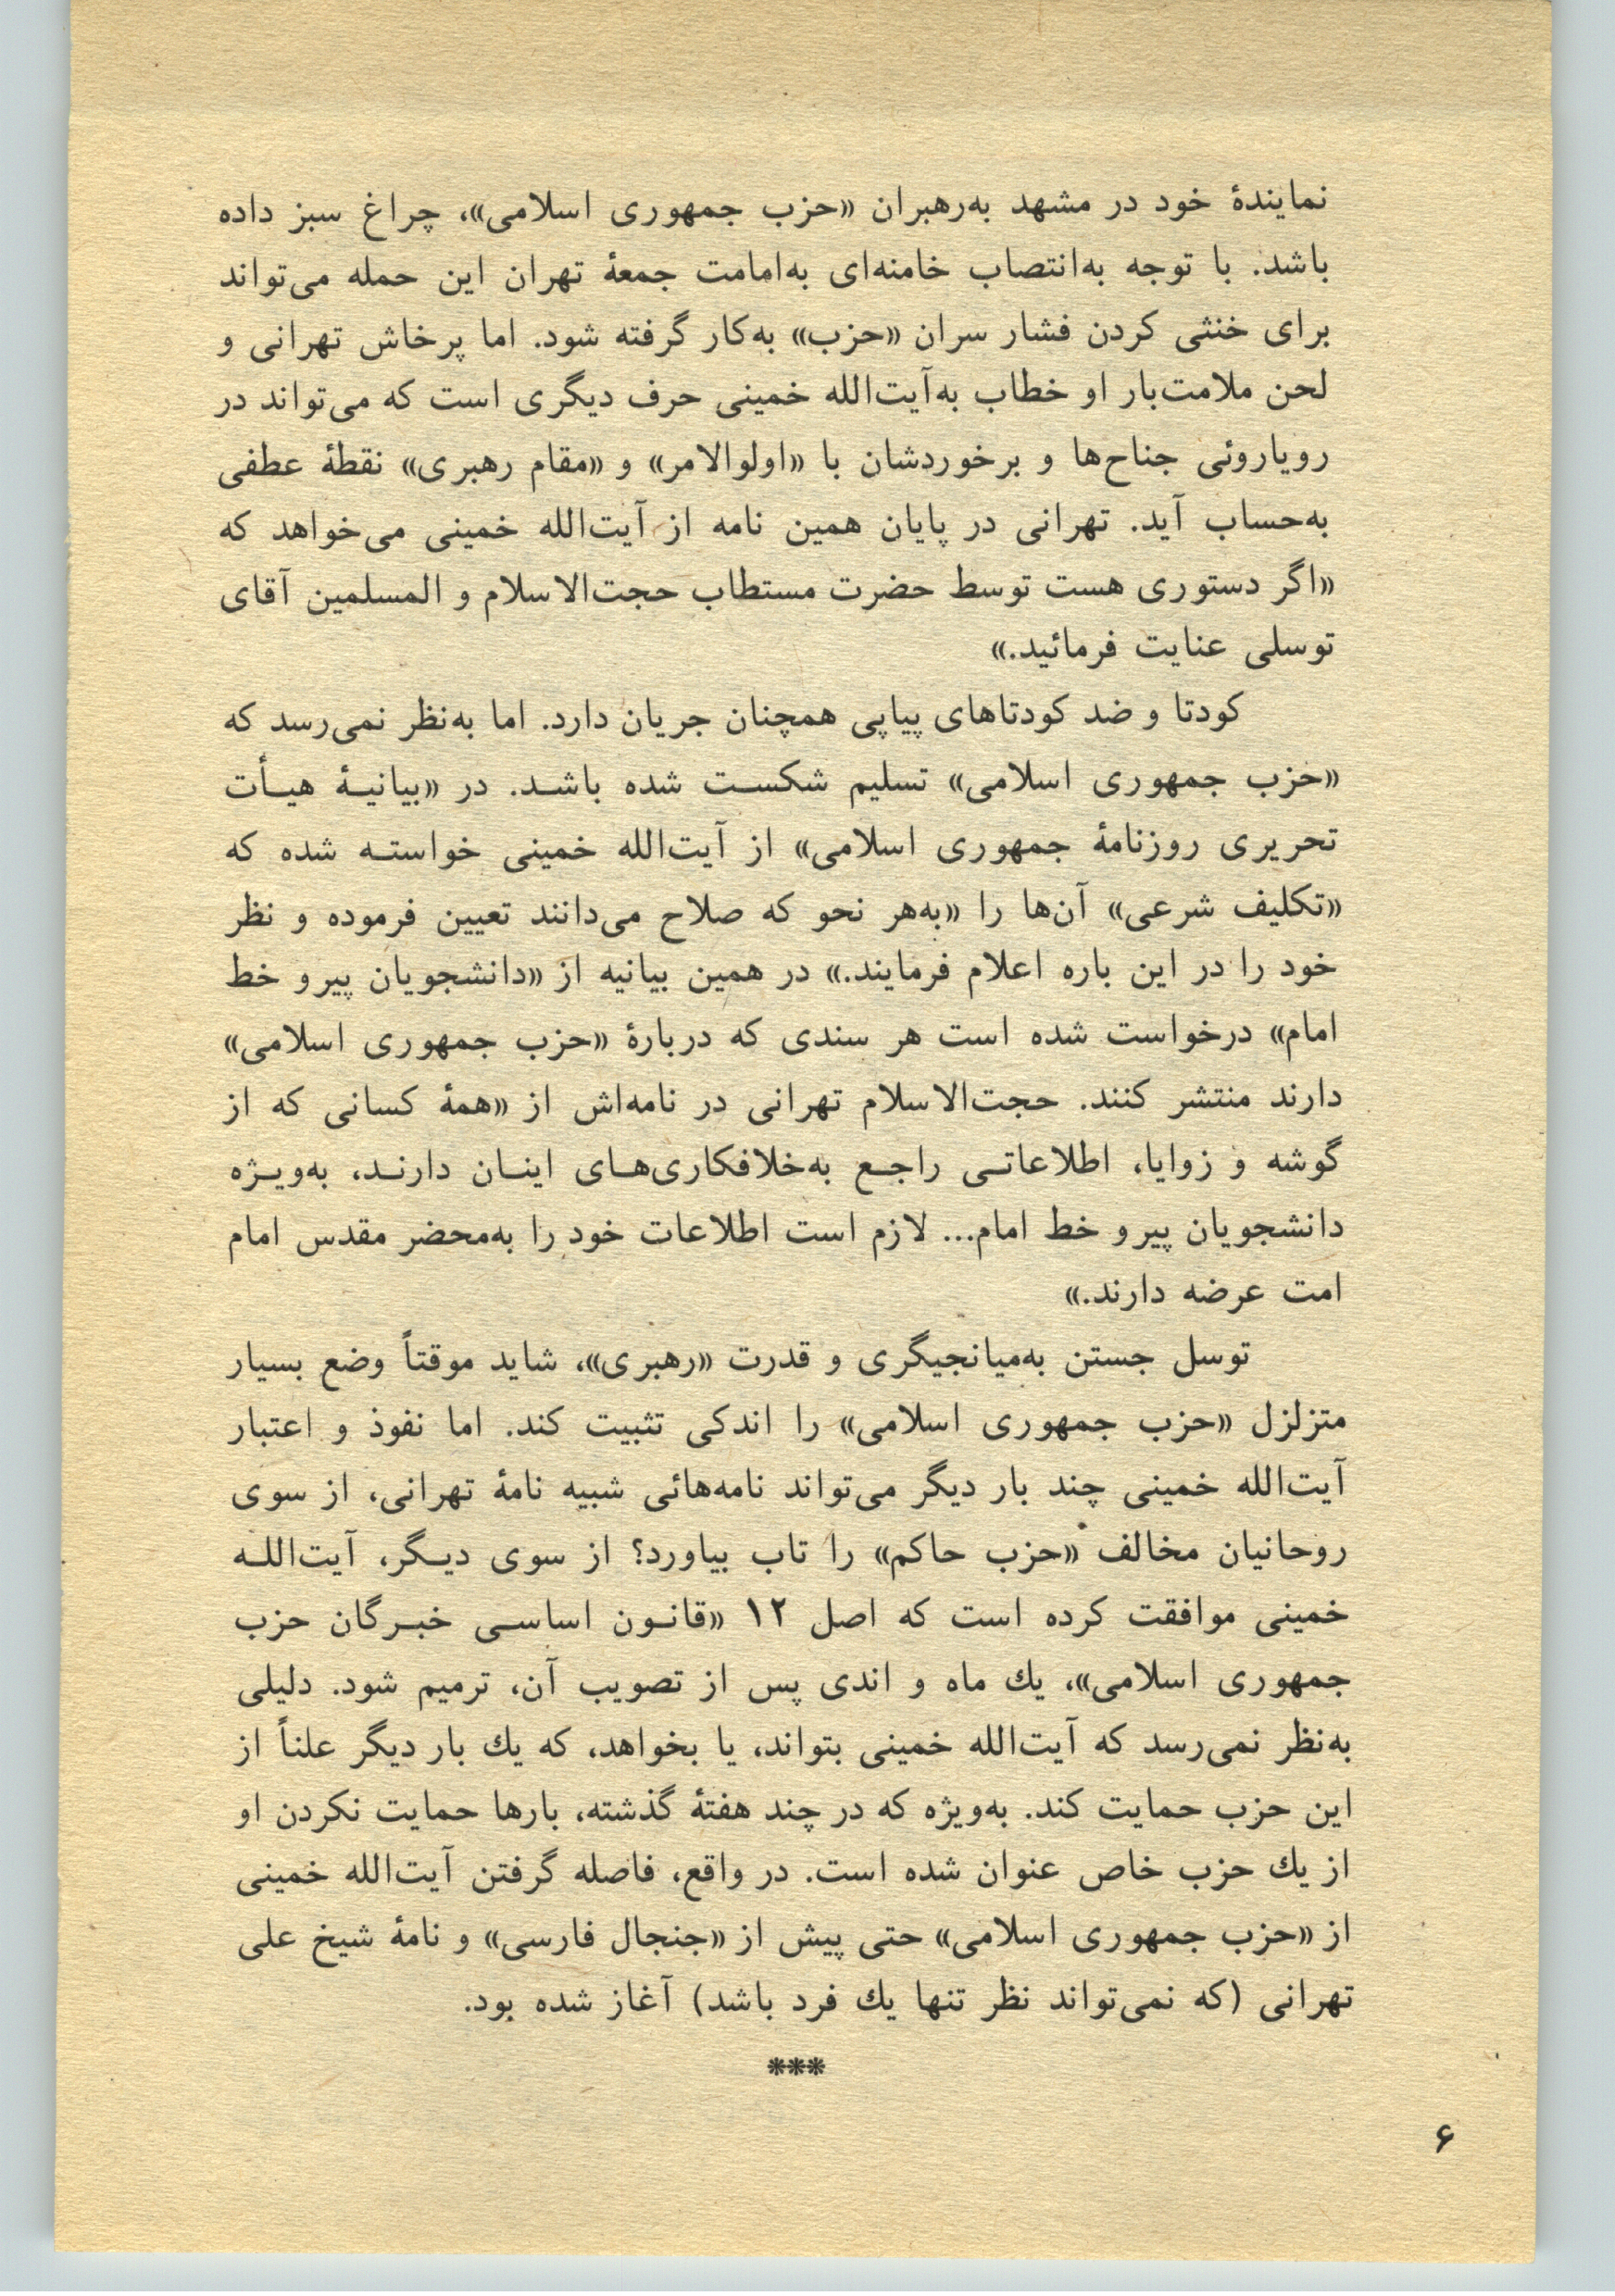 نمایندهٔ خود در مشهد به‌رهبران «حزب جمهوری اسلامی»، چراغ سبز داده
باشد. با توجه به‌انتصاب خامنه‌ای به‌امامت جمعهٔ تهران این حمله می‌تواند
برای خنثی کردن فشار سران «حزب» به‌کار گرفته شود. اما پرخاش تهرانی و
لحن ملامت‌بار او خطاب به‌آیت‌الله خمینی حرف دیگری است که می‌تواند در
رویاروئی جناح‌ها و برخوردشان با «اولوالامر» و «مقام رهبری» نقطهٔ عطفی
به‌حساب آید. تهرانی در پایان همین نامه از آیت‌الله خمینی می‌خواهد که
«اگر دستوری هست توسط حضرت مستطاب حجت‌الاسلام و المسلمین آقای
توسلی عنایت فرمائید.»
کودتا و ضد کودتاهای پیاپی همچنان جریان دارد. اما به‌نظر نمی‌رسد که
«حزب جمهوری اسلامی» تسلیم شکست شده باشد. در «بیانیهٔ هیأت
تحریری روزنامهٔ جمهوری اسلامی» از آیت‌الله خمینی خواسته شده که
«تکلیف شرعی» آن‌ها را «به‌هر نحو که صلاح می‌دانند تعیین فرموده و نظر
خود را در این باره اعلام فرمایند.» در همین بیانیه از «دانشجویان پیرو خط
امام» درخواست شده است هر سندی که دربارهٔ «حزب جمهوری اسلامی»
دارند منتشر کنند. حجت‌الاسلام تهرانی در نامه‌اش از «همهٔ کسانی که از
گوشه و زوایا، اطلاعاتی راجع به‌خلافکاری‌های اینان دارند، به‌ویژه
دانشجویان پیرو خط امام... لازم است اطلاعات خود را به‌محضر مقدس امام
امت عرضه دارند.»
توسل جستن به‌میانجیگری و قدرت «رهبری»، شاید موقتاً وضع بسیار
متزلزل «حزب جمهوری اسلامی» را اندکی تثبیت کند. اما نفوذ و اعتبار
آیت‌الله خمینی چند بار دیگر می‌تواند نامه‌هائی شبیه نامهٔ تهرانی، از سوی
روحانیان مخالف «حزب حاکم» را تاب بیاورد؟ از سوی دیگر، آیت‌الله
خمینی موافقت کرده است که اصل ۱۲ «قانون اساسی خبرگان حزب
جمهوری اسلامی»، یك ماه و اندی پس از تصویب آن، ترمیم شود. دلیلی
به‌نظر نمی‌رسد که آیت‌الله خمینی بتواند، یا بخواهد، که یك بار دیگر علناً از
این حزب حمایت کند. به‌ویژه که در چند هفتهٔ گذشته، بارها حمایت نکردن او
از یك حزب خاص عنوان شده است. در واقع، فاصله گرفتن آیت‌الله خمینی
از «حزب جمهوری اسلامی» حتی پیش از «جنجال فارسی» و نامهٔ شیخ علی
تهرانی (که نمی‌تواند نظر تنها یك فرد باشد) آغاز شده بود.
***
۶